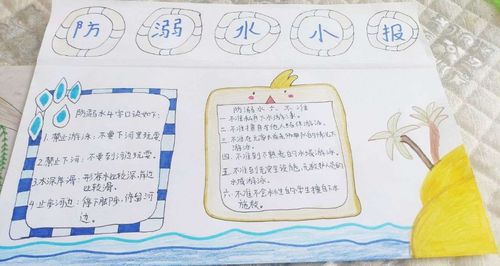 防溺水小报
防溺水4字口诀如下:
1.禁止游泳:不要下河里玩耍.
2.禁止下河:不要到河边玩耍.
3.水深岸滑:河水比较深,岸边
比较滑.
4.止步河边:停下脚步,停留河
边.
防溺水六不准
一.不准私自下水游泳.
二.不准擅自与他人结伴游泳.
三.不准在无家长或老师带队的情况下
游泳.
四.不准到不熟悉的水域游泳.
五.不准到无安全设施、无救护人员的
水域游泳.
六.不准不会水性的学生擅自下水
施救.